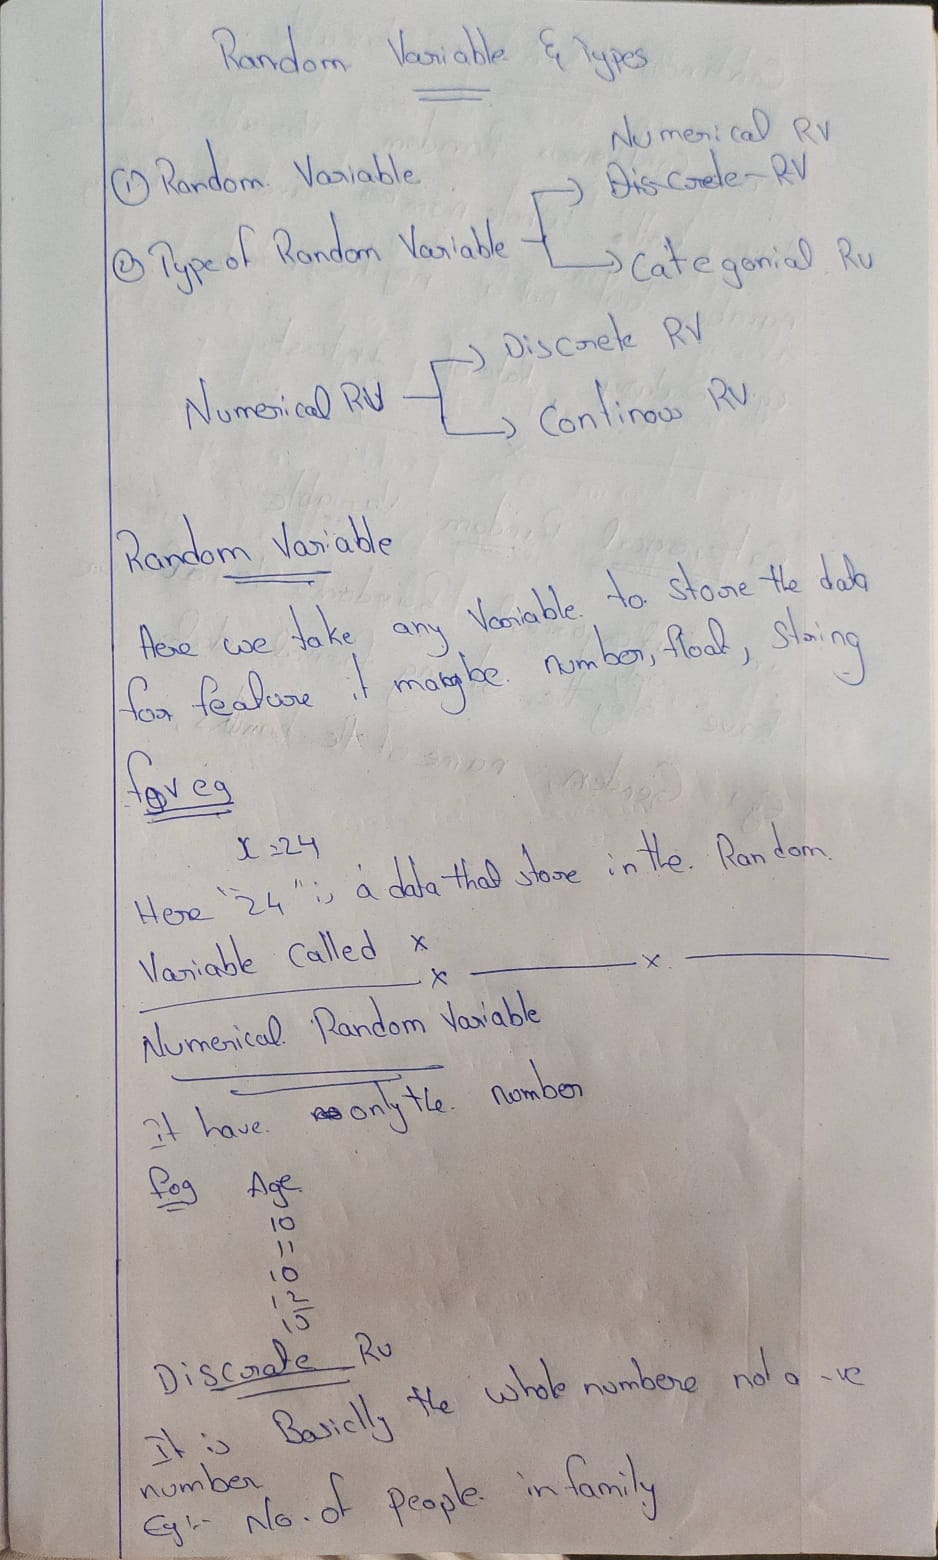 Random Variable & Types
Numerical RV
① Random Variable
Discrete-RV
② Type of Random Variable
Categorial RV
Discrete RV
Numerical RV
Continous RV
Random Variable
Here we take any Variable to store the data
for feature it maybe number, float, string
for eg
x=24
Here "24" is a data that store in the Random
Variable Called x
x x
Numerical Random Variable
it have only the number
Age
10
11
10
12
15
Discrete RV
It is Basiclly the whole numbere not a -ve
number
Eg:- No. of People in family